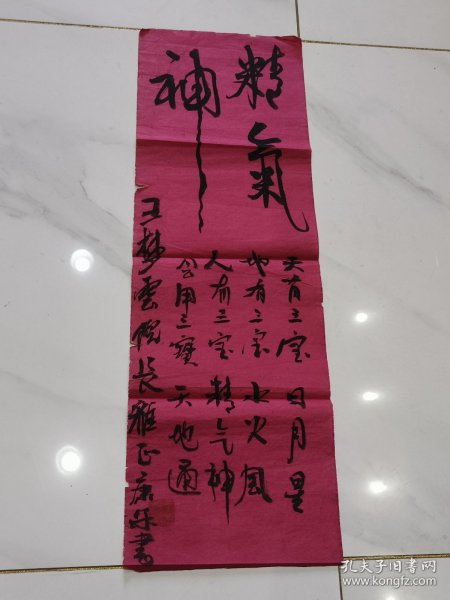 精氣
神
天有三宝 日月星
地有三宝 水火风
人有三宝 精气神
会用三寶 天地通
王梦雲院长雅正 康年書
孔夫子旧书网
www.kongfz.com